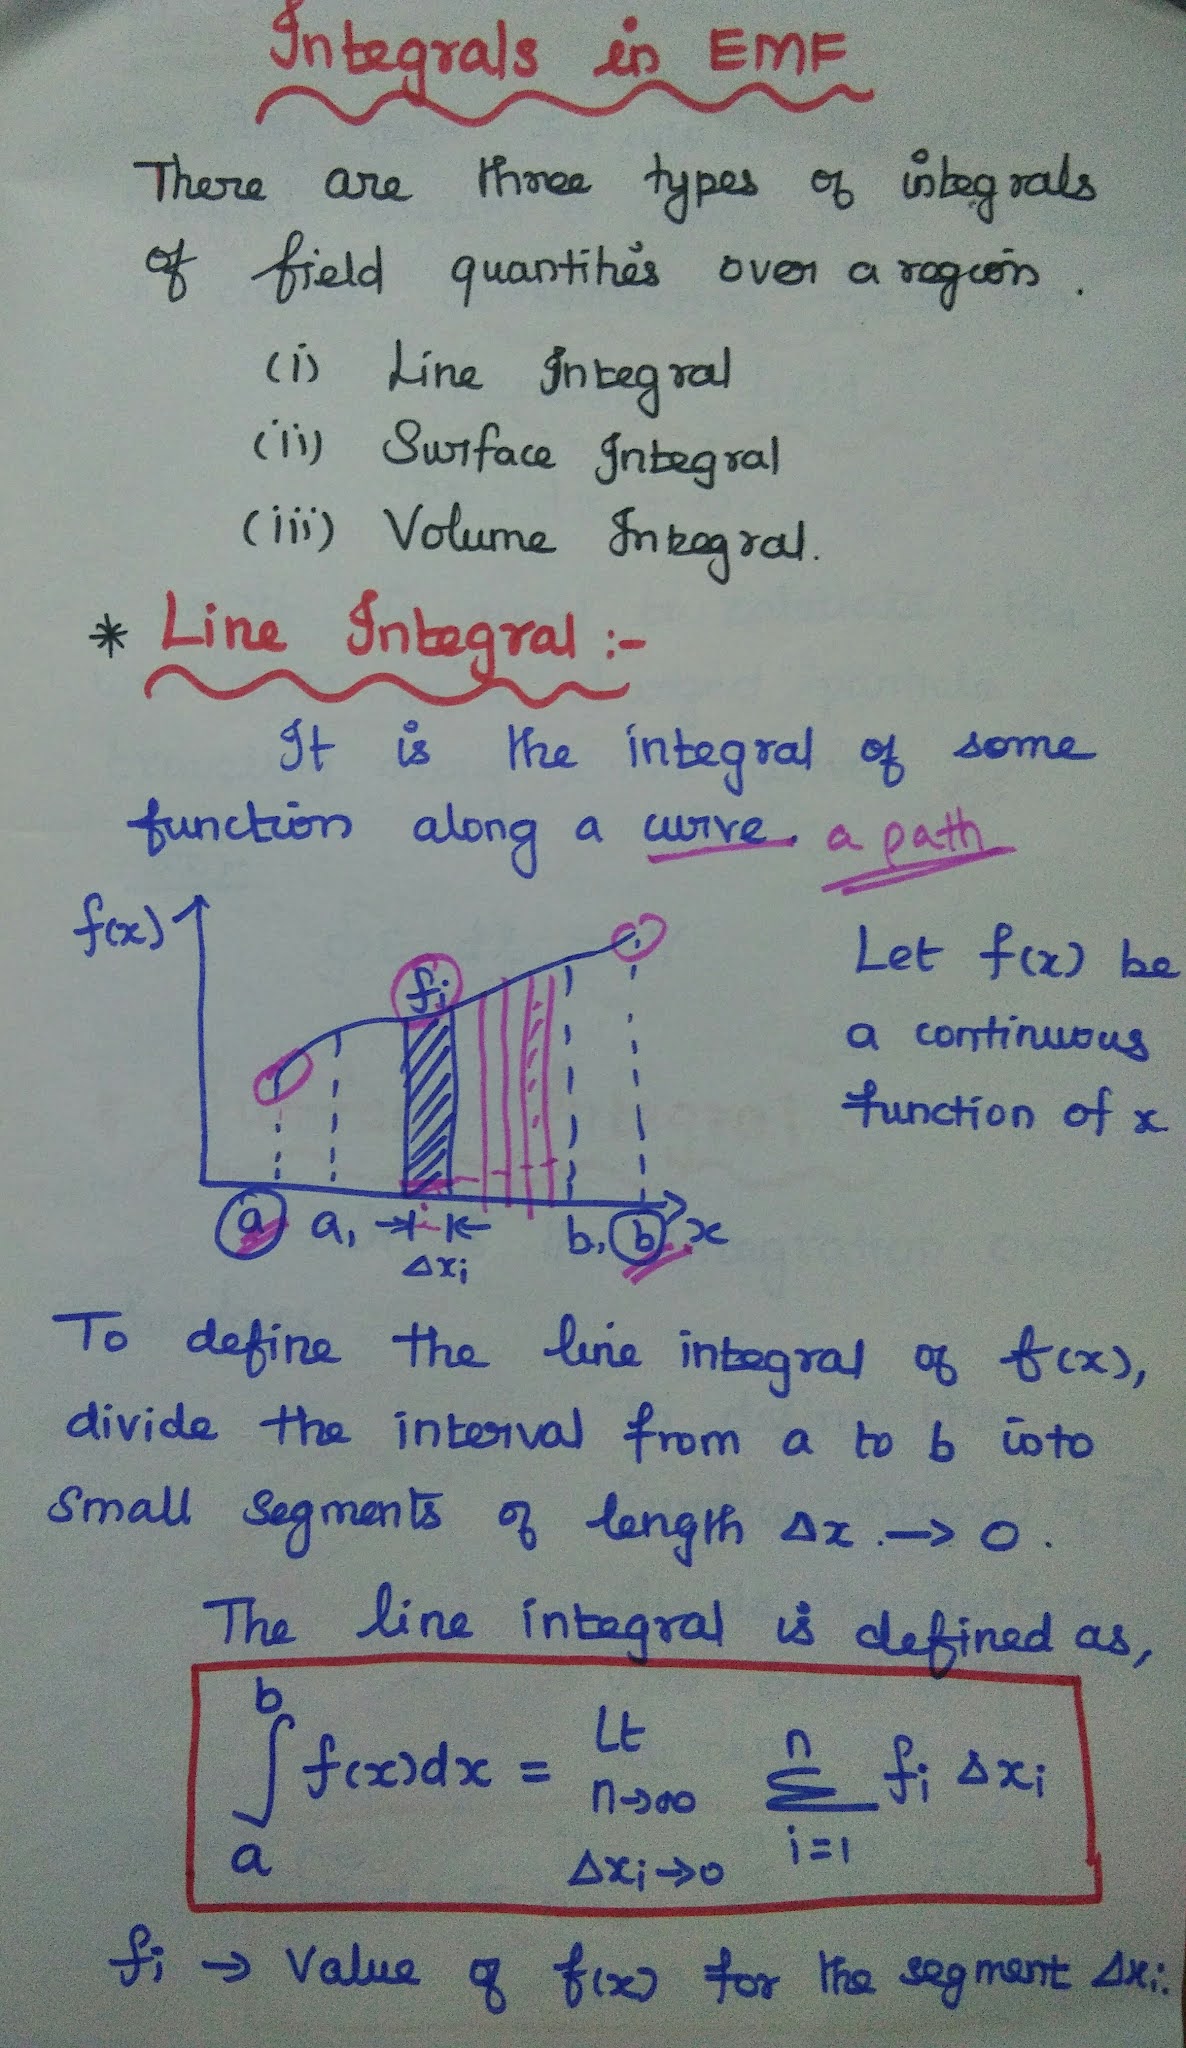 Integrals in EMF
There are three types of integrals
of field quantities over a region.
(i) Line Integral
(ii) Surface Integral
(iii) Volume Integral.
* Line Integral :-
It is the integral of some
function along a curve. a path
f(x)
fi
Let f(x) be
a continuous
function of x
a a₁ b₁ b x
Δxi
To define the line integral of f(x),
divide the interval from a to b into
small segments of length Δx → 0.
The line integral is defined as,
∫ₐᵇ f(x)dx = Lt n→∞ Δxi→0 Σ i=1 n fi Δxi
fi → Value of f(x) for the segment Δxi.